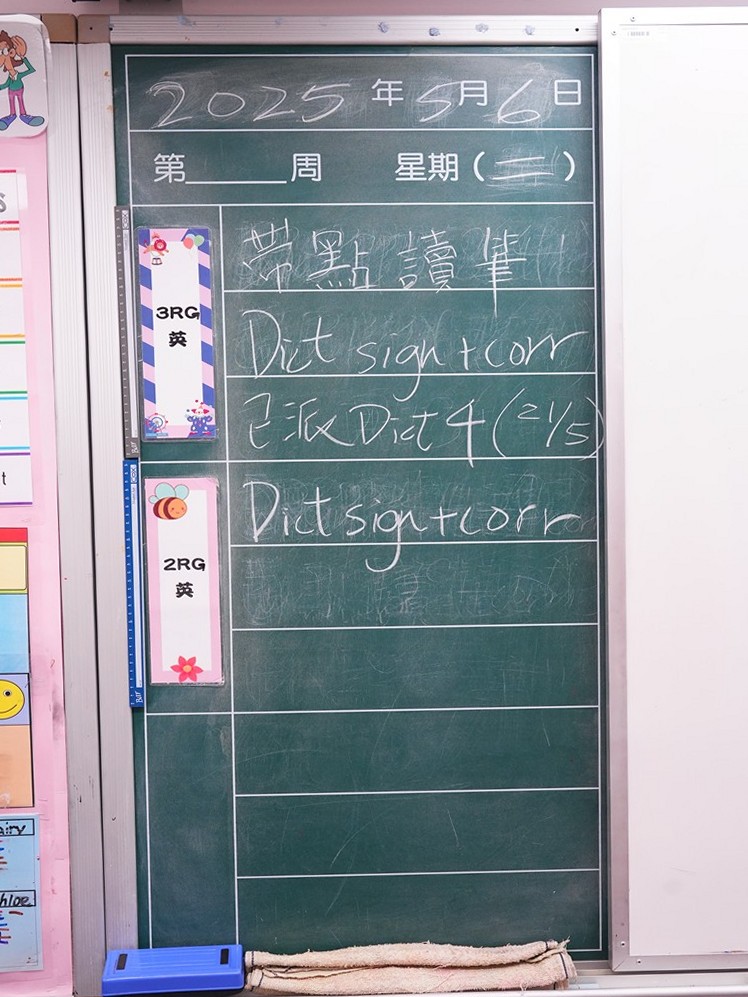 2025年5月6日
第____周 星期(二)
3RG
英
帶點讀筆
Dict sign + corr
已派Dict 4 (21/5)
2RG
英
Dict sign + corr
Bar
Bar